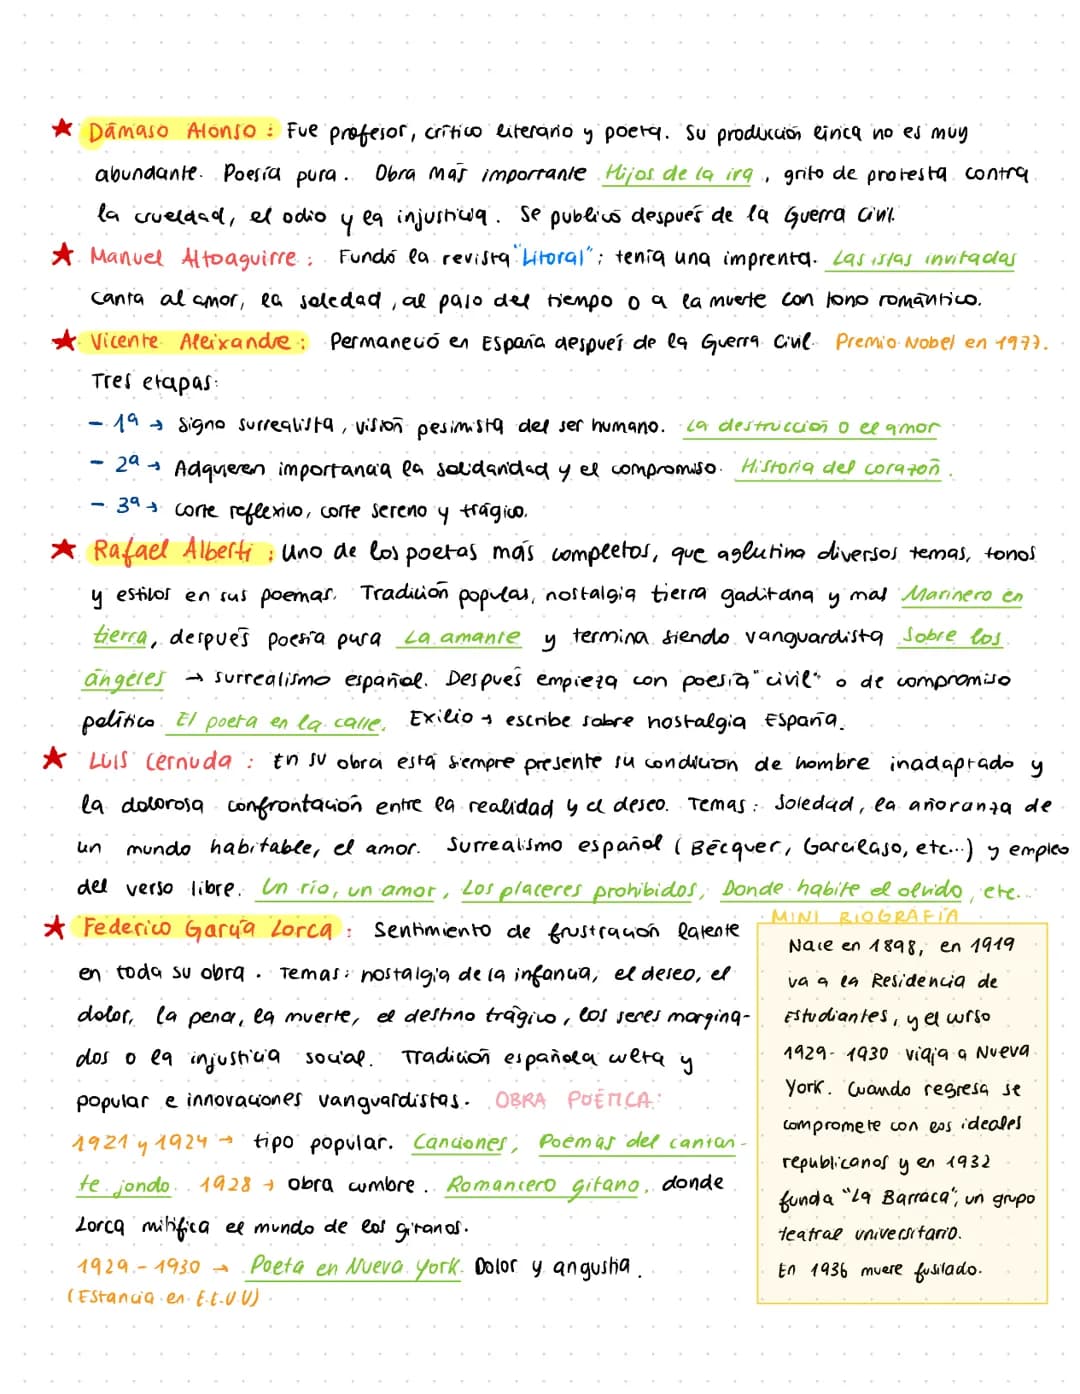 ★ Dámaso Alonso: Fue profesor, crítico literario y poeta. Su producción lírica no es muy
abundante. Poesía pura. Obra más importante Hijos de la ira, grito de protesta contra
la crueldad, el odio y la injusticia. Se publicó después de la Guerra Civil.
★ Manuel Altoaguirre: Fundó la revista "Litoral"; tenía una imprenta. Las islas invitadas
canta al amor, la soledad, al paso del tiempo o a la muerte con tono romántico.
★ Vicente Aleixandre: Permaneció en España después de la Guerra Civil. Premio Nobel en 1977.
Tres etapas:
- 1ª → Signo surrealista, visión pesimista del ser humano. La destrucción o el amor
- 2ª → Adquieren importancia la solidaridad y el compromiso. Historia del corazón.
- 3ª → Corte reflexivo, corte sereno y trágico.
★ Rafael Alberti: Uno de los poetas más completos, que aglutina diversos temas, tonos
y estilos en sus poemas. Tradición popular, nostalgia tierra gaditana y mar Marinero en
tierra, después poesía pura La amante y termina siendo vanguardista Sobre los
ángeles → surrealismo español. Después empieza con poesía "civil" o de compromiso
político El poeta en la calle. Exilio → escribe sobre nostalgia España.
★ Luis Cernuda: En su obra está siempre presente su condición de hombre inadaptado y
la dolorosa confrontación entre la realidad y el deseo. Temas: Soledad, la añoranza de
un mundo habitable, el amor. Surrealismo español (Bécquer, Garcilaso, etc...) y empleo
del verso libre. Un río, un amor, Los placeres prohibidos, Donde habite el olvido, etc...
★ Federico García Lorca: Sentimiento de frustración latente
en toda su obra. Temas: nostalgia de la infancia, el deseo, el
dolor, la pena, la muerte, el destino trágico, los seres margina-
dos o la injusticia social. Tradición española culta y
popular e innovaciones vanguardistas. OBRA POÉTICA:
1921 y 1924 → tipo popular. Canciones, Poemas del cantan-
te jondo. 1928 → obra cumbre. Romancero gitano, donde
Lorca mitifica el mundo de los gitanos.
1929 - 1930 → Poeta en Nueva York. Dolor y angustia.
(Estancia en E.E.U.U)
MINI BIOGRAFÍA
Nace en 1898, en 1919
va a la Residencia de
Estudiantes, y el curso
1929-1930 viaja a Nueva
York. Cuando regresa se
compromete con los ideales
republicanos y en 1932
funda "La Barraca", un grupo
teatral universitario.
En 1936 muere fusilado.